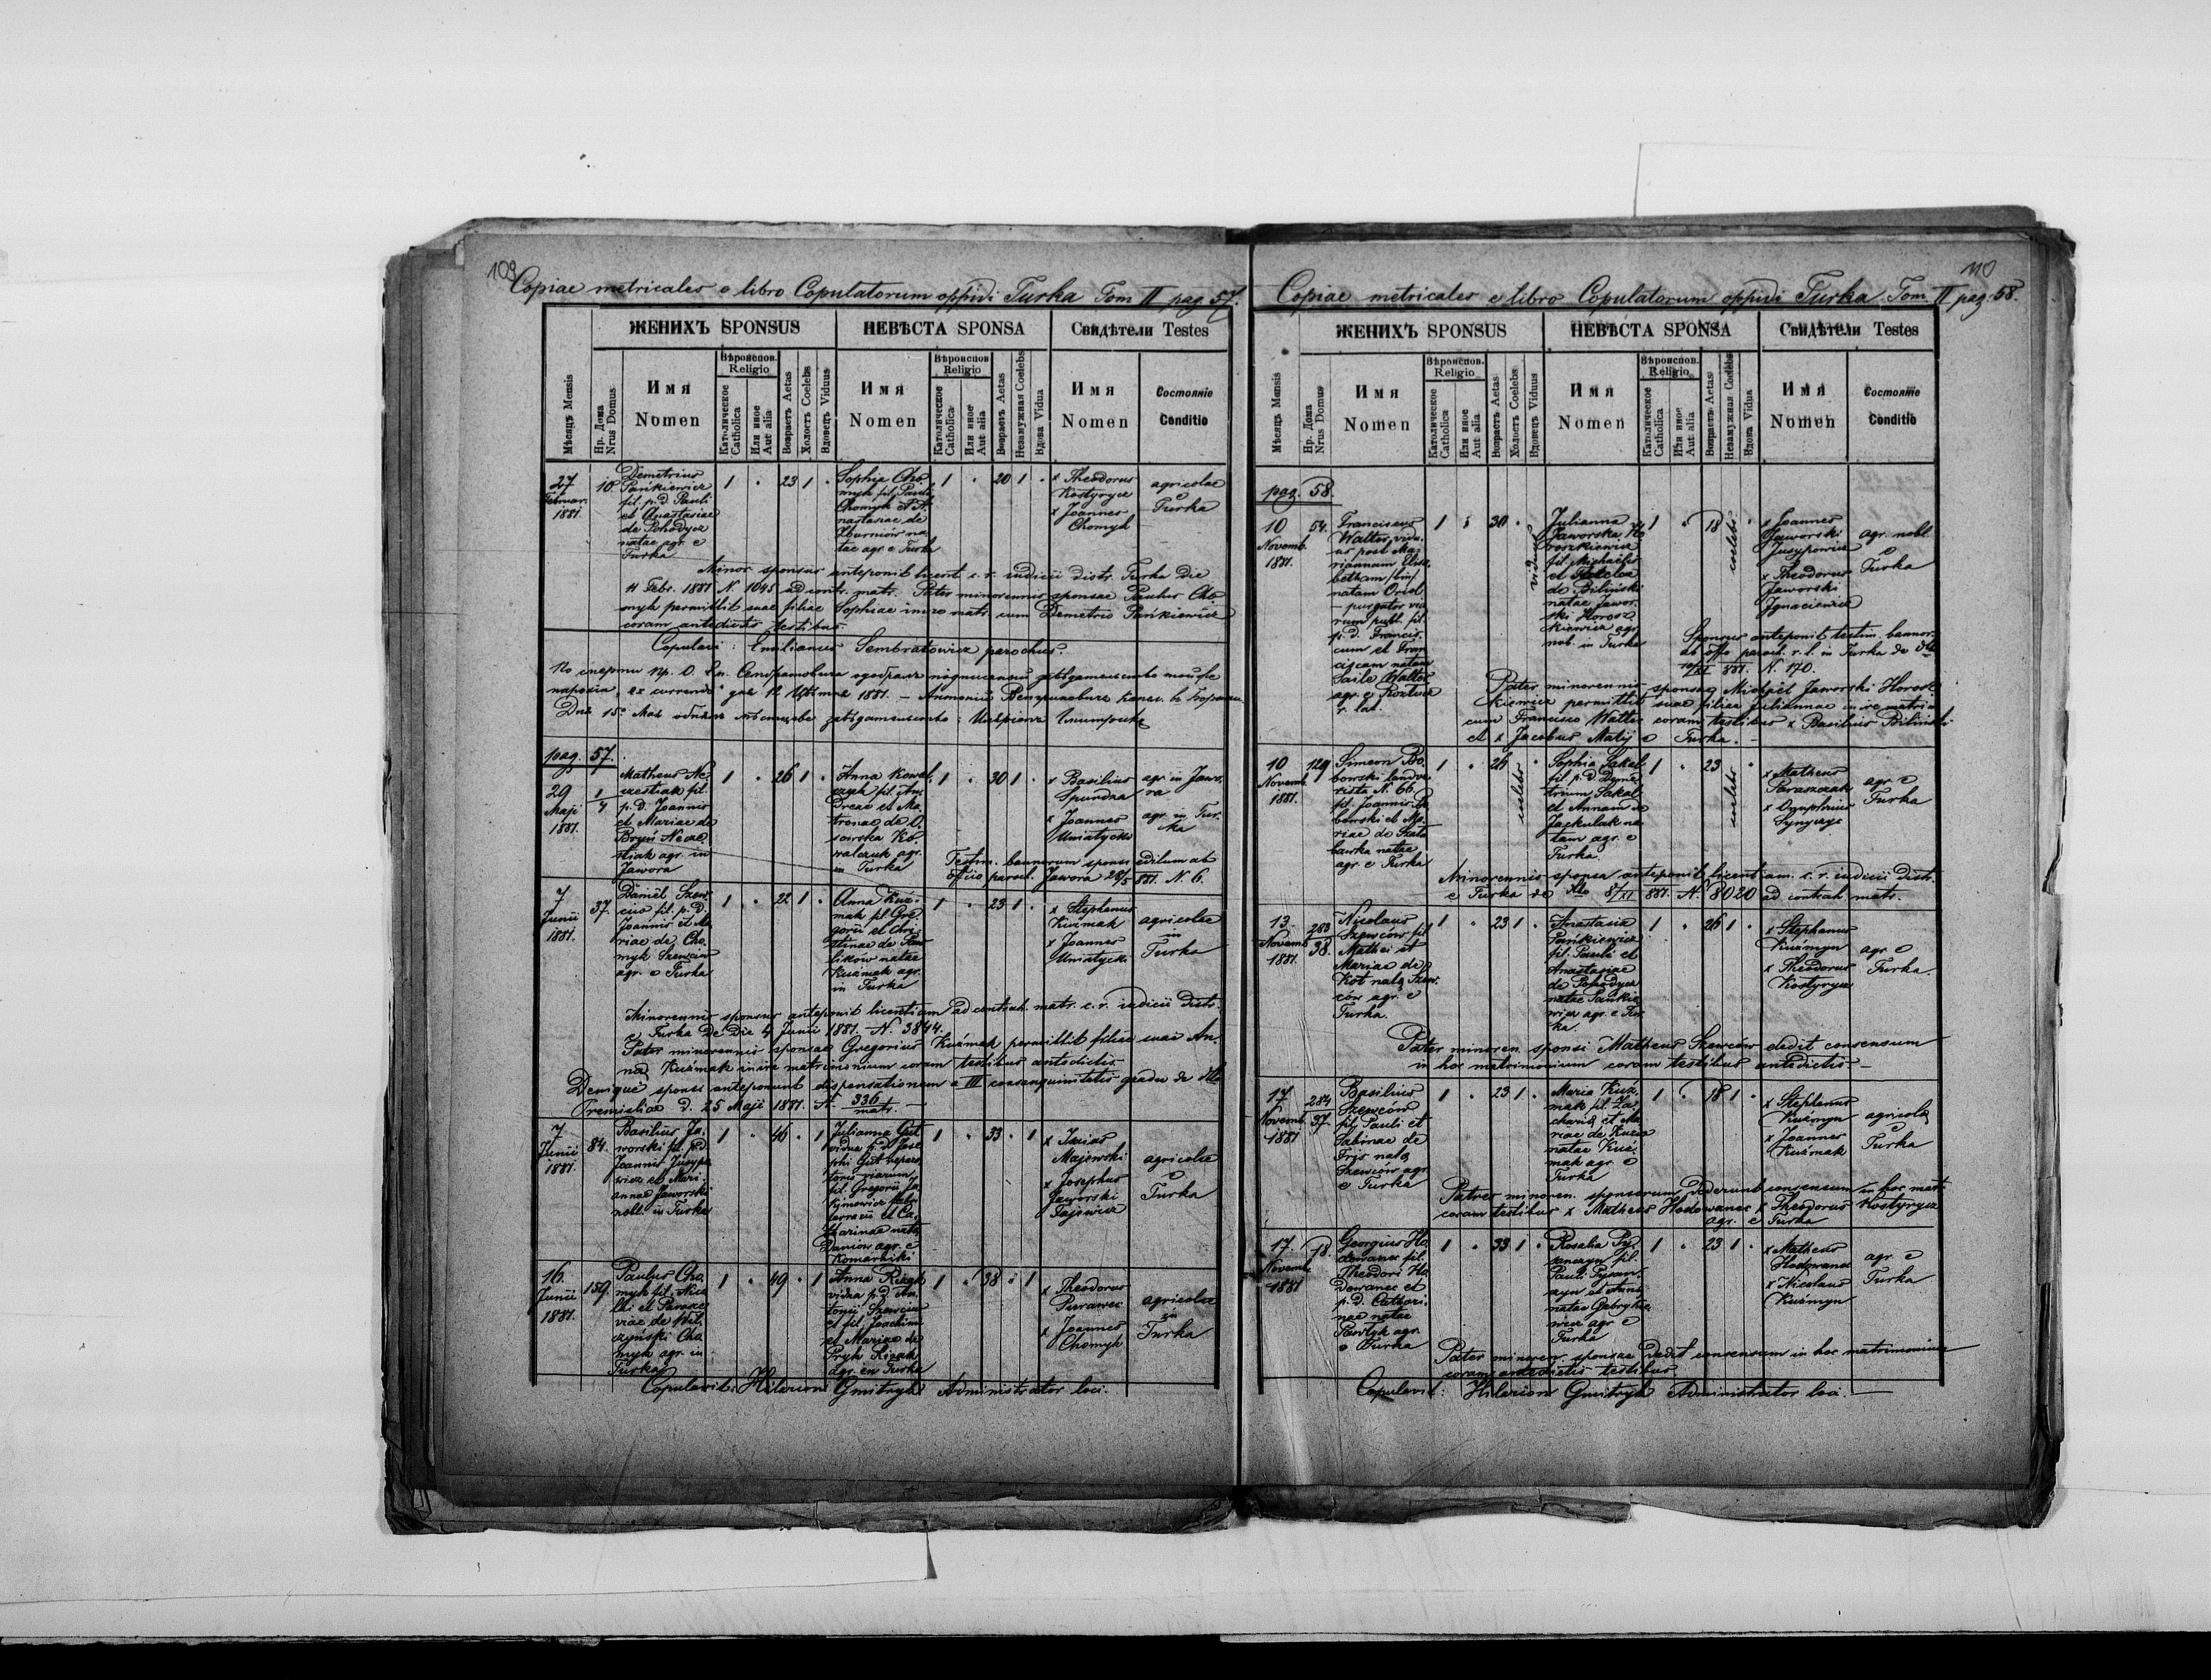 109
Copiae metricales e libro Copulatorum oppidi Turka Tom II pag. 57.
ЖЕНИХЪ SPONSUS
НЕВѢСТА SPONSA
Свидѣтели Testes
Мѣсяцъ Mensis
Нр. Дома
Nrus Domus
Имя
Nomen
Вѣроиспов.
Religio
Католическое
Catholica
Или иное
Aut alia
Возрастъ Aetas
Холостъ Coelebs
Вдовецъ Viduus
Имя
Nomen
Вѣроиспов.
Religio
Католическое
Catholica
Или иное
Aut alia
Возрастъ Aetas
Незамужная Coelebs
Вдова Vidua
Имя
Nomen
Состоянie
Conditio
27
Februar.
1881.
10.
Demetrius
Pańkiewicz
fil. p. d. Pauli
et Anastasiae
de Pohodycz
natae agr. e
Turka
1 " 23 1 "
Sophia Cho-
myk fil. Pauli
Chomyk et A-
nastasiae de
Iburniów na-
tae agr. e Turka
1 " 20 1 "
x Theodorus
Kostyrycz
x Joannes
Chomyk
agricolae
e
Turka
Minor sponsus anteponit licent. c. r. iudicii distr. Turka die
4 Febr. 1881 N. 1045 ad contr. matr. Pater minorennis sponsae Paulus Cho-
myk permittit suae filiae Sophiae inire matr. cum Demetrio Pańkiewicz
coram antedictis testibus.
Copulavi: Emilianus Sembratowicz parochus.
По смерти Пр. О. Ем. Сембратовича
парохіи "ex currendo" дня 12 1881. – Антоній
Дня 15. Мая обнялъ мѣстцеве завѣдательство: Иларіонъ Гмитрикъ
pag. 57.
29
Maji
1881.
1/4
Matheus Ne-
czestiak fil.
p. d. Joannis
et Mariae de
Bryń Necze-
stiak agr. in
Jawora
1 " 26 1 "
Anna Kowal-
czyk fil. An-
dreae et Ma-
tronae de O-
sowska Ko-
walczuk agr.
in Turka
1 " 30 1 "
x Basilius
Spundza
x Joannes
Uniatycki
agr. in Jawo-
ra
agr. in Tur-
ka
Testim. bannorum sponsi editum ab
officio paroch. Jawora 28/5 881. N. 6.
7
Junii
1881.
37.
Daniel Szew-
ców fil. p. d.
Joannis et Ma-
riae de Cho-
myk Szewców
agr. e Turka
1 " 22 1 "
Anna Kuź-
mak fil. Gre-
gorii et Chri-
stinae de Paw-
lików natae
Kuźmak agr.
in Turka
1 " 23 1 "
x Stephanus
Kuźmak
x Joannes
Uniatycki
agricolae
in
Turka
Minorennis sponsus anteponit licentiam ad contrah. matr. c. r. iudicii distr.
e Turka de die 4 Junii 1881. N. 3844.
Pater minorennis sponsae Gregorius Kuźmak permittit filiae suae An-
na Kuźmak inire matrimonium coram testibus antedictis.
Denique sponsi anteponunt dispensationem a III consanguinitatis gradu de dto
Premisliae d. 25 Maji 1881. N. 336/matr. –
7
Junii
1881.
84.
Basilius Ja-
worski fil. p. d.
Joannis Jusypo-
wicz et Mari-
annae Jaworski
nobl. in Turka
1 " 46 " 1
Julianna Gut
vidua p. d. Jose-
phi Gut
fil. Gregorii Ja-
kymowicz fabri
ferrarii et Ca-
tharinae nata
Daniów agr. e
Komarniki
1 " 33 " 1
x Isaias
Majewski
x Josephus
Jaworski
Fajowicz
agricolae
e
Turka
16.
Junii
1881.
159.
Paulus Cho-
myk fil. Nico-
lai et Parasce-
viae de Wil-
czyński Cho-
myk agr. in
Turka
1 " 49 " 1
Anna Rizak
vidua p. d. An-
tonii Szewców
et fil. Joachimi
et Mariae de
Pryk Rizak
agr. in Turka
1 " 38 " 1
x Theodorus
Purawec
x Joannes
Chomyk
agricolae
in
Turka
Copulavit: Hilarion Gmitryk Administrator loci.
110
Copiae metricales e libro Copulatorum oppidi Turka Tom. II pag. 58.
ЖЕНИХЪ SPONSUS
НЕВѢСТА SPONSA
Свидѣтели Testes
Мѣсяцъ Mensis
Нр. Дома
Nrus Domus
Имя
Nomen
Вѣроиспов.
Religio
Католическое
Catholica
Или иное
Aut alia
Возрастъ Aetas
Холостъ Coelebs
Вдовецъ Viduus
Имя
Nomen
Вѣроиспов.
Religio
Католическое
Catholica
Или иное
Aut alia
Возрастъ Aetas
Незамужная Coelebs
Вдова Vidua
Имя
Nomen
Состоянie
Conditio
pag. 58.
10
Novemb.
1881.
54.
Franciscus
Walter, vidu-
us post Ma-
riannam Elisa-
betham
natam Oriel
– purgator via-
rum publ. fil.
p. d. Francis-
cum et Fran-
ciscam natam
Saile Walter
agr. e Roztocz
r. lat.
1 " 30 "
viduus
Julianna
Jaworska Ho-
roszkiewicz
fil. Michaelis
et Theclae
de Biliński
natae Jawor-
ski Horosz-
kiewicz agr.
nob. in Turka
1 " 18
coelebs
x Joannes
Jaworski
Jusypowicz
x Theodorus
Jaworski
Ignaciewicz
agr. nobl.
e
Turka
Sponsus anteponit testim. bannor.
ab offo paroch. r. l. in Turka de dto
10/XI 881. N. 170.
Pater minorennis sponsae Michaël Jaworski Horosz-
kiewicz permittit suae filiae Juliannae inire matrim.
cum Francisco Walter coram testibus x Basilius Biliński
et x Jacobus Matij e Turka. –
10
Novemb.
1881.
129
Simeon Bo-
bowski landwe-
rista N. 66.
fil. Joannis Bo-
bowski et Ma-
riae de Szata-
bawka natae
agr. e Turka
1 " 26
coelebs
Sophia Sakal
fil. p. d. Deme-
trium Sakal
et Annam de
Jackulak na-
tam agr. e
Turka.
1 " 23
coelebs
x Matheus
Paraszczak
x Onuphrius
Synyczyc
agr. e
Turka
Minorennis sponsa anteponit licentiam. c. r. iudicii distr.
e Turka de dto 8/XI 881. N. 8020 ad contrah. matr.
13.
Novemb.
1881.
283
38.
Nicolaus
Szewców fil.
Mathei et
Mariae de
Kot nata Szew-
ców agr. e
Turka.
1 " 23 1 "
Anastasia
Pańkiewicz
fil. Pauli et
Anastasiae
de Pohodycz
natae Pańkie-
wicz agr. e Tur-
ka.
1 " 26 1 "
x Stephanus
Kuźmyn
x Theodorus
Kostyrycz
agr. e
Turka.
Pater minoren. sponsi Matheus Szewców dedit consensum
in hoc matrimonium coram testibus antedictis –
17
Novemb.
1881
284
37.
Basilius
Szewców
fil. Pauli et
Sabinae de
Fris nata
Szewców agr.
e Turka
1 " 23 1 "
Maria Kuź-
mak fil. Za-
chariae et Ma-
riae de Kucza
natae Kuź-
mak agr. e
Turka
1 " 18 1 "
x Stephanus
Kuźmyn
x Joannes
Kuźmak
agricola
e
Turka
Patres minoren. sponsorum dederunt consensum in hoc matr.
coram testibus x Matheus Hodowanec x Theodorus Kostyrycz
agr. e Turka
17.
Novemb.
1881
78.
Georgius Ho-
dowanec fil.
Theodori Ho-
dowanec et
p. d. Cathari-
nae natae
Pawlyk agr.
e Turka
1 " 33 1 "
Rosalia Py-
sanczyn fil.
Pauli Pysan-
czyn et Anna
natae Gabryke-
wicz agr. e
Turka
1 " 23 1 "
x Matheus
Hodowanec
x Nicolaus
Kuźmyn
agr. e
Turka
Pater minoren. sponsae dedit consensum in hoc matrimonium
coram antedictis testibus.
Copulavit: Hilarion Gmitryk Administrator loci. –